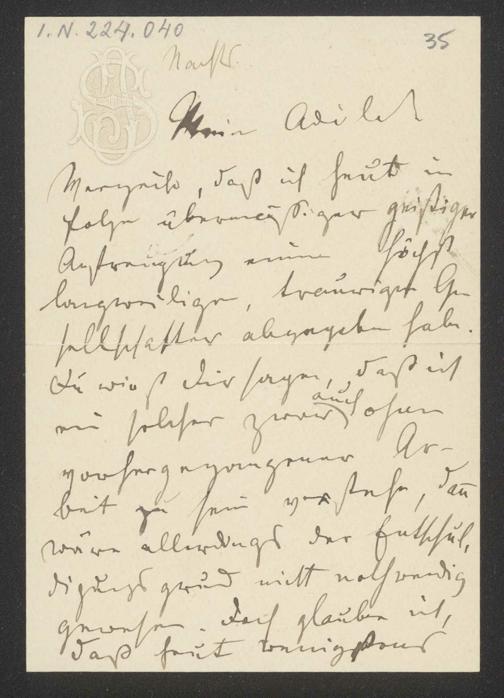 I. N. 224.040
35
Nachts.
Mein Adilet
Verzeihe, daß ich heut in
folge übermäßiger geistiger
Anstrengung einen höchst
langweiligen, traurigen Ge
sellschafter abgegeben habe.
Du wirst Dir sagen, daß ich
ein solcher zwar auch ohne
vorhergegangener Ar-
beit zu sein verstehe, dañ
wäre allerdings der Entschul,
digungsgrund nicht nothwendig
gewesen. Doch glaube ich,
daß heut wenigstens